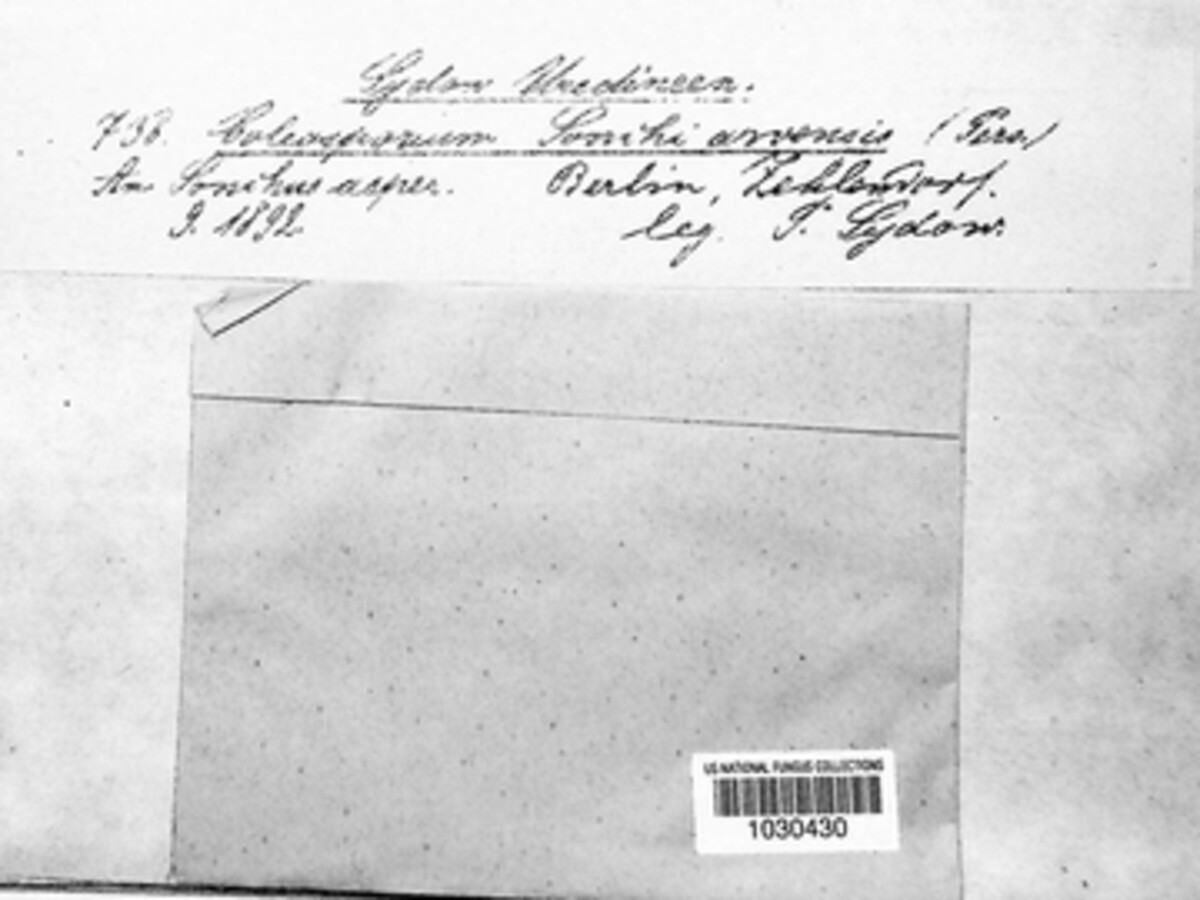 Sydow Uredineen.
738. Coleosporium Sonchi arvensis (Pers.)
An Sonchus asper. Berlin, Zehlendorf.
9. 1892. leg. P. Sydow.
US NATIONAL FUNGUS COLLECTIONS
1030430